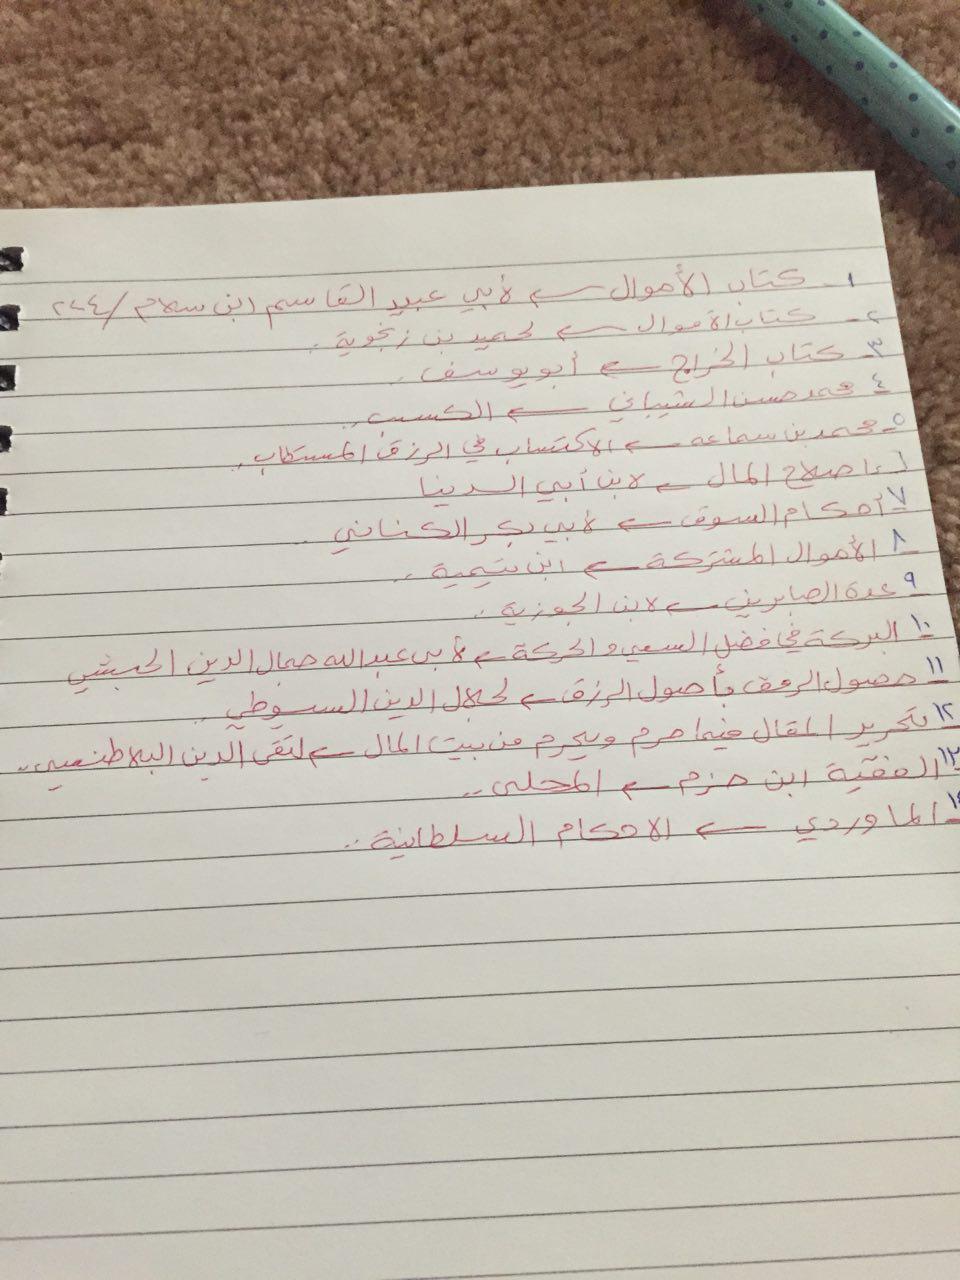 ١- كتاب الأموال ← لأبي عبيد القاسم ابن سلام / ٢٢٤
٢- كتاب الأموال ← لحميد بن زنجوية .
٣- كتاب الخراج ← أبو يوسف .
٤- محمد حسن الشيباني ← الكسب ..
٥- محمد بن سماعه ← الاكتساب في الرزق المستطاب .
٦- اصلاح المال ← لابن أبي الدينا
٧- أحكام السوق ← لأبي بكر الكناني .
٨- الأموال المشتركة ← ابن تيمية ..
٩- عدة الصابرين ← لابن الجوزية .
١٠- البركة في فضل السعي والحركة ← لأبي عبدالله جمال الدين الحبشي
١١- حصول الرفق بأصول الرزق ← لجلال الدين السيوطي ..
١٢- تحرير المقال فيما حرم ويحرم من بيت المال ← لتقى الدين البلاطنسي ..
١٣- الفقية ابن حزم ← المحلى ..
١٤- الماوردي ← الاحكام السلطانية ..